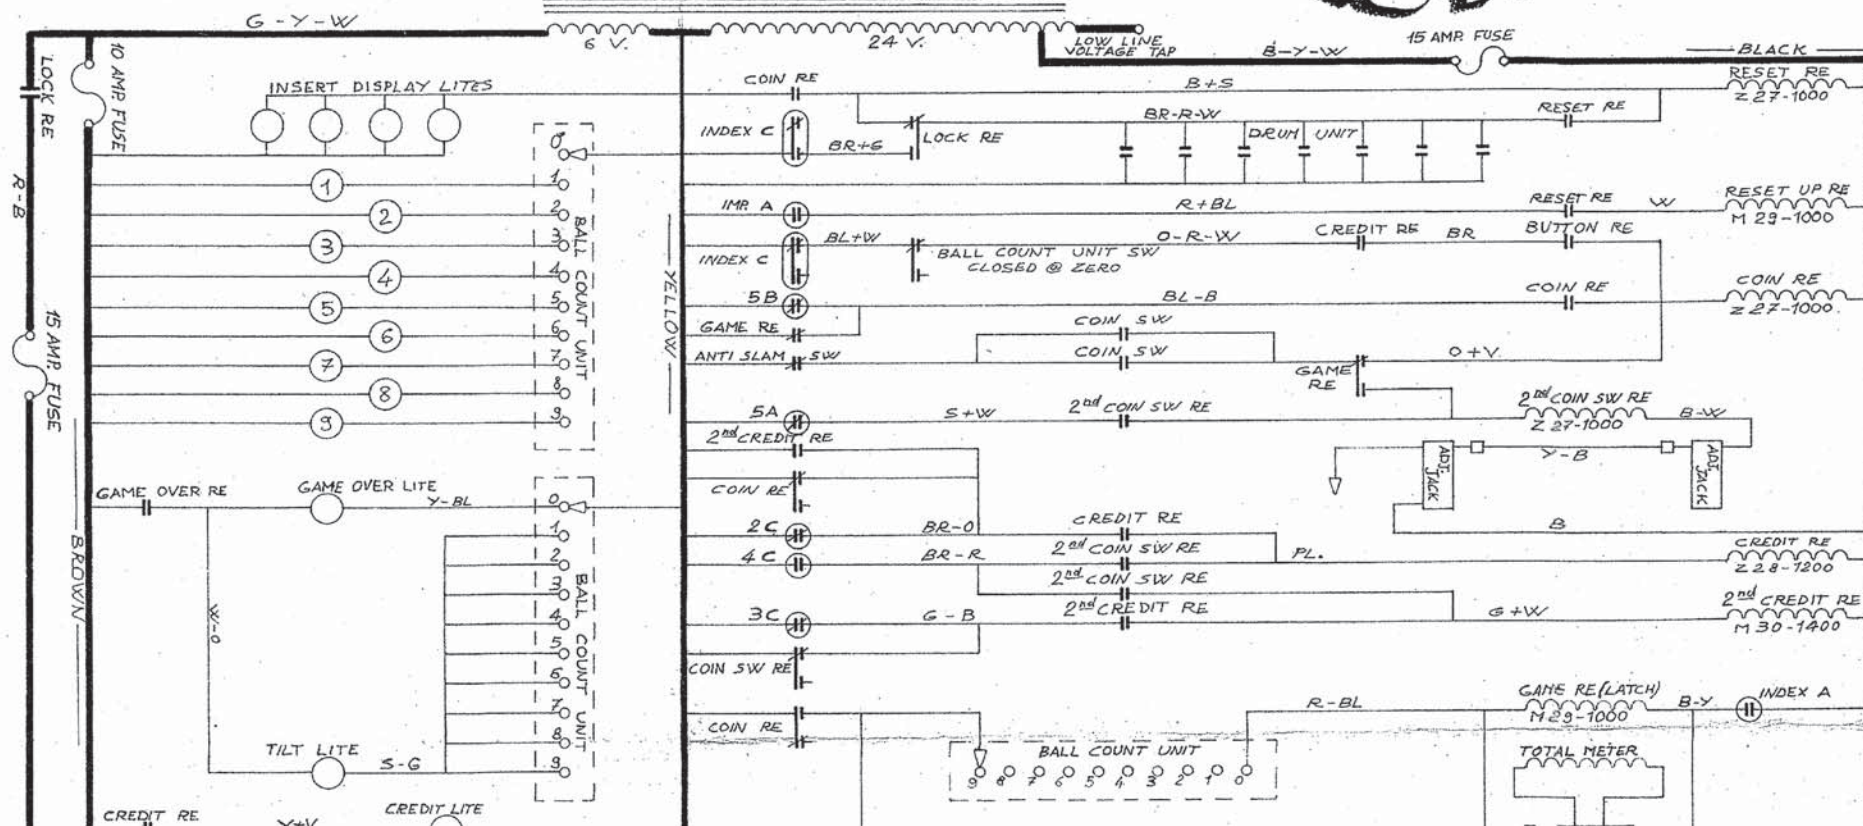 G-Y-W
6 V.
24 V.
LOW LINE
VOLTAGE TAP
B-Y-W
15 AMP. FUSE
BLACK
LOCK RE
10 AMP. FUSE
R-B
15 AMP. FUSE
BROWN
INSERT DISPLAY LITES
0
1
2
3
4
5
6
7
8
9
BALL COUNT UNIT
1
2
3
4
5
6
7
8
9
GAME OVER RE
GAME OVER LITE
Y-BL
W-O
TILT LITE
S-G
0
1
2
3
4
5
6
7
8
9
BALL COUNT UNIT
CREDIT RE
Y+V
CREDIT LITE
YELLOW
COIN RE
B+S
RESET RE
Z 27-1000
INDEX C
BR+G
LOCK RE
BR-R-W
DRUM UNIT
RESET RE
IMP. A
R+BL
RESET RE
W
RESET UP RE
M 29-1000
INDEX C
BL+W
BALL COUNT UNIT SW
CLOSED @ ZERO
O-R-W
CREDIT RE
BR
BUTTON RE
5B
BL-B
COIN RE
COIN RE
Z 27-1000.
GAME RE
COIN SW
ANTI SLAM SW
COIN SW
GAME
RE
O+V
5A
S+W
2nd COIN SW RE
2nd COIN SW RE
Z 27-1000
B-W
2nd CREDIT RE
ADJ. JACK
Y-B
ADJ. JACK
COIN RE
B
2C
BR-O
CREDIT RE
PL.
CREDIT RE
Z 28-1200
4C
BR-R
2nd COIN SW RE
2nd COIN SW RE
3C
G-B
2nd CREDIT RE
G+W
2nd CREDIT RE
M 30-1400
COIN SW RE
COIN RE
R-BL
GAME RE (LATCH)
M 29-1000
B-Y
INDEX A
BALL COUNT UNIT
9 8 7 6 5 4 3 2 1 0
TOTAL METER